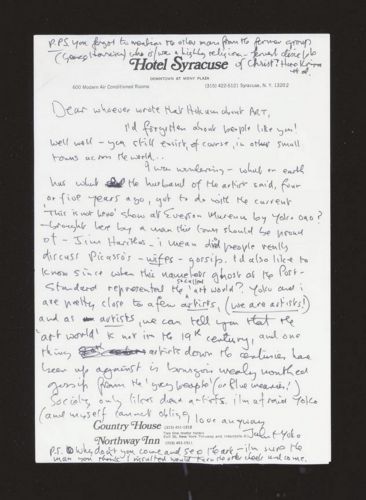 P.P.S. you forgot to mention the other man from the former group
(George Harrison) who is a highly religious - fervent disciple
of Christ? Hare Krishna
et al.
Hotel Syracuse
DOWNTOWN AT MONY PLAZA
600 Modern Air Conditioned Rooms
(315) 422-5121 Syracuse, N.Y. 13202
Dear whoever wrote that Hokum about ART,
I'd forgotten about people like you!
well well - you still exist, of course, in other small
towns across the world...
I was wondering - what on earth
has what the husband of the artist said, four
or five years ago, got to do with the current
'This is not here' show at Everson Museum by Yoko Ono?
- brought here by a man this town should be proud
of - Jim Harithas. - i mean did people really
discuss Picasso's - wifes - gossip. I'd also like to
know since when this nameless ghost of the Post-
Standard represented the so called 'art world'? Yoko and i
are pretty close to a few artists, (we are artists!)
and as artists, we can tell you that the
'art world' is not in the 19th century, and one
thing artists down the centuries have
been up against is bourgeois mealy mouthed
gossip from the 'grey people' (or Blue meanies!)
Society only likes dead artists. i'm afraid Yoko
(and myself cannot oblige,
love anyway,
John + Yoko
Country House
(315) 451-1212
Northway Inn
(315) 451-1511
P.S. Why don't you come and see the art - i'm sure the
man you think i insulted would turn the other cheek and come.